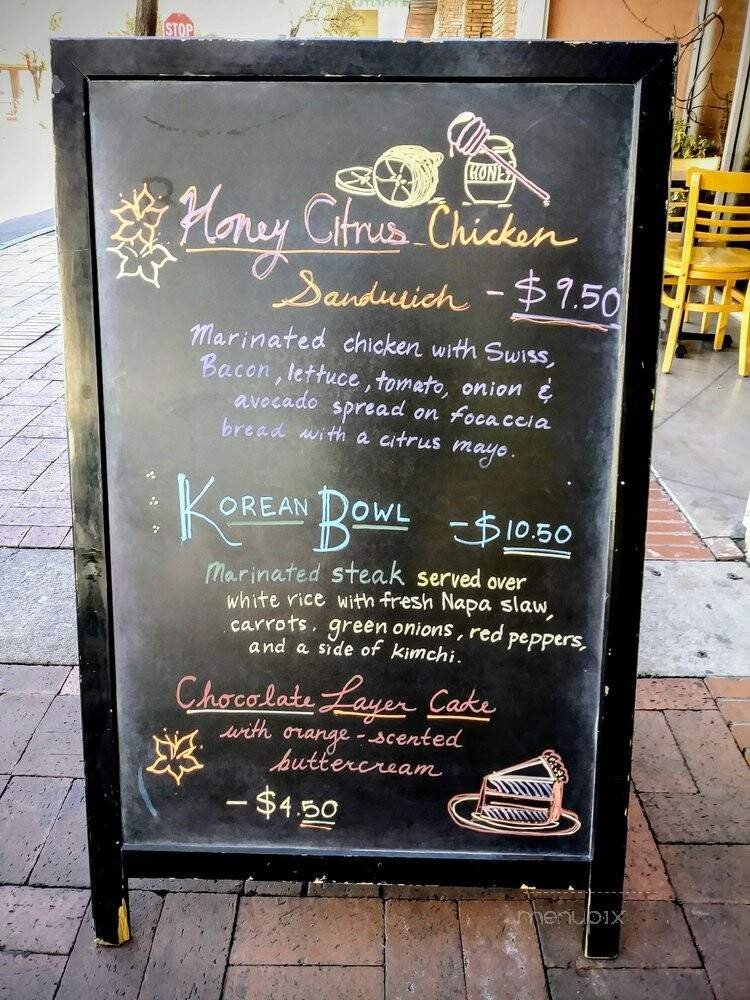 STOP
HONEY
Honey Citrus Chicken
Sandwich - $9.50
Marinated chicken with Swiss,
Bacon, lettuce, tomato, onion &
avocado spread on focaccia
bread with a citrus mayo.
KOREAN BOWL - $10.50
Marinated steak served over
white rice with fresh Napa slaw,
carrots, green onions, red peppers,
and a side of kimchi.
Chocolate Layer Cake
with orange-scented
buttercream
- $4.50
menupix